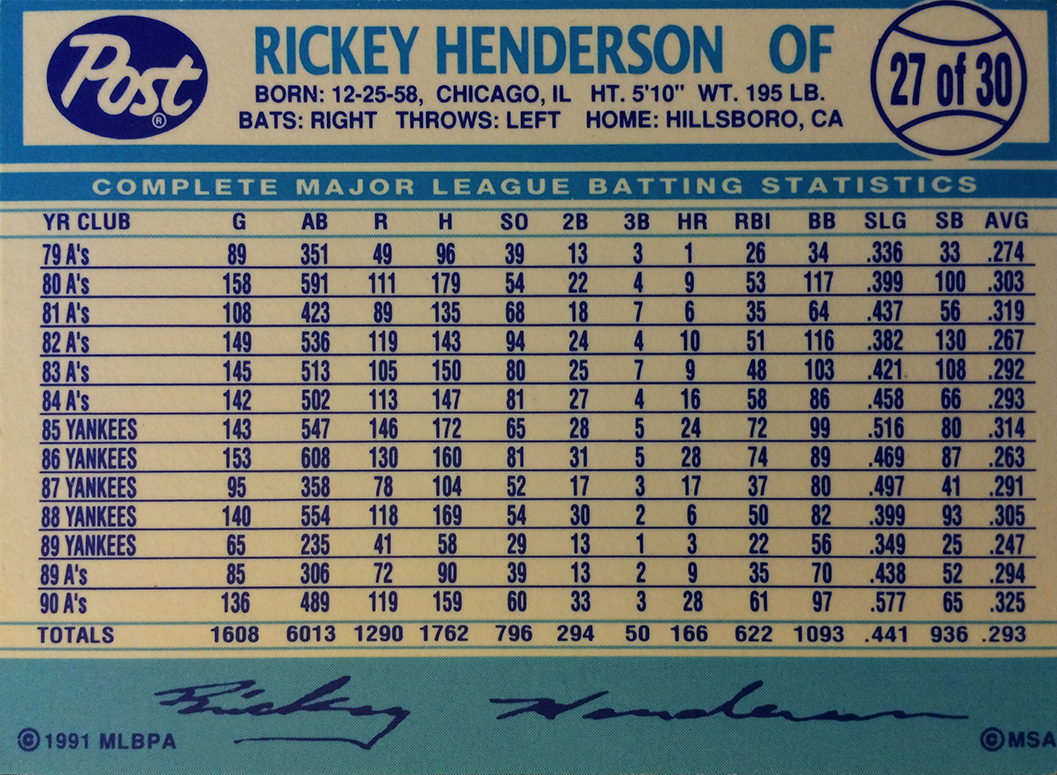 Post®
RICKEY HENDERSON OF
27 of 30
BORN: 12-25-58, CHICAGO, IL HT. 5'10" WT. 195 LB.
BATS: RIGHT THROWS: LEFT HOME: HILLSBORO, CA
COMPLETE MAJOR LEAGUE BATTING STATISTICS
YR CLUB G AB R H SO 2B 3B HR RBI BB SLG SB AVG
79 A's 89 351 49 96 39 13 3 1 26 34 .336 33 .274
80 A's 158 591 111 179 54 22 4 9 53 117 .399 100 .303
81 A's 108 423 89 135 68 18 7 6 35 64 .437 56 .319
82 A's 149 536 119 143 94 24 4 10 51 116 .382 130 .267
83 A's 145 513 105 150 80 25 7 9 48 103 .421 108 .292
84 A's 142 502 113 147 81 27 4 16 58 86 .458 66 .293
85 YANKEES 143 547 146 172 65 28 5 24 72 99 .516 80 .314
86 YANKEES 153 608 130 160 81 31 5 28 74 89 .469 87 .263
87 YANKEES 95 358 78 104 52 17 3 17 37 80 .497 41 .291
88 YANKEES 140 554 118 169 54 30 2 6 50 82 .399 93 .305
89 YANKEES 65 235 41 58 29 13 1 3 22 56 .349 25 .247
89 A's 85 306 72 90 39 13 2 9 35 70 .438 52 .294
90 A's 136 489 119 159 60 33 3 28 61 97 .577 65 .325
TOTALS 1608 6013 1290 1762 796 294 50 166 622 1093 .441 936 .293
Rickey Henderson
©1991 MLBPA
©MSA